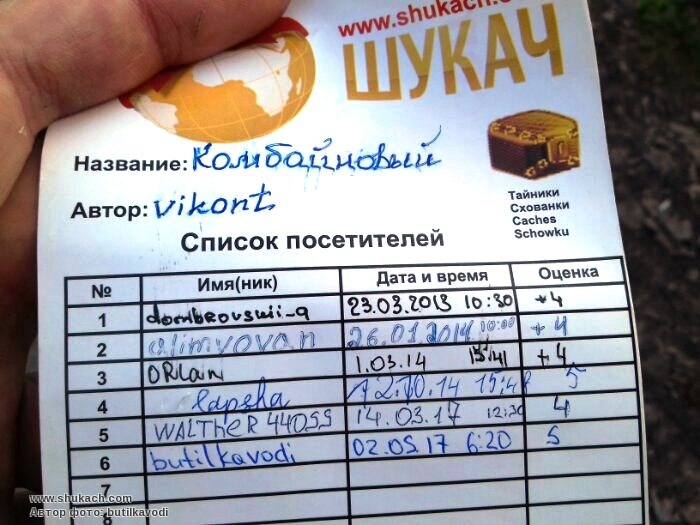 www.shukach.com
ШУКАЧ
Название: Комбайновый
Автор: vikont
Тайники
Схованки
Caches
Schowku
Список посетителей
№ Имя(ник) Дата и время Оценка
1 dombrovskii-a 23.03.2013 10:30 +4
2 alimvovan 26.01.2014 10:00 +4
3 ORLan 1.03.14 15:41 +4
4 lapsha 12.10.14 5
5 WALTHER 440SS 14.03.17 12:30 4
6 butilkavodi 02.05.17 6:20 5
7
8
www.shukach.com
Автор фото: butilkavodi